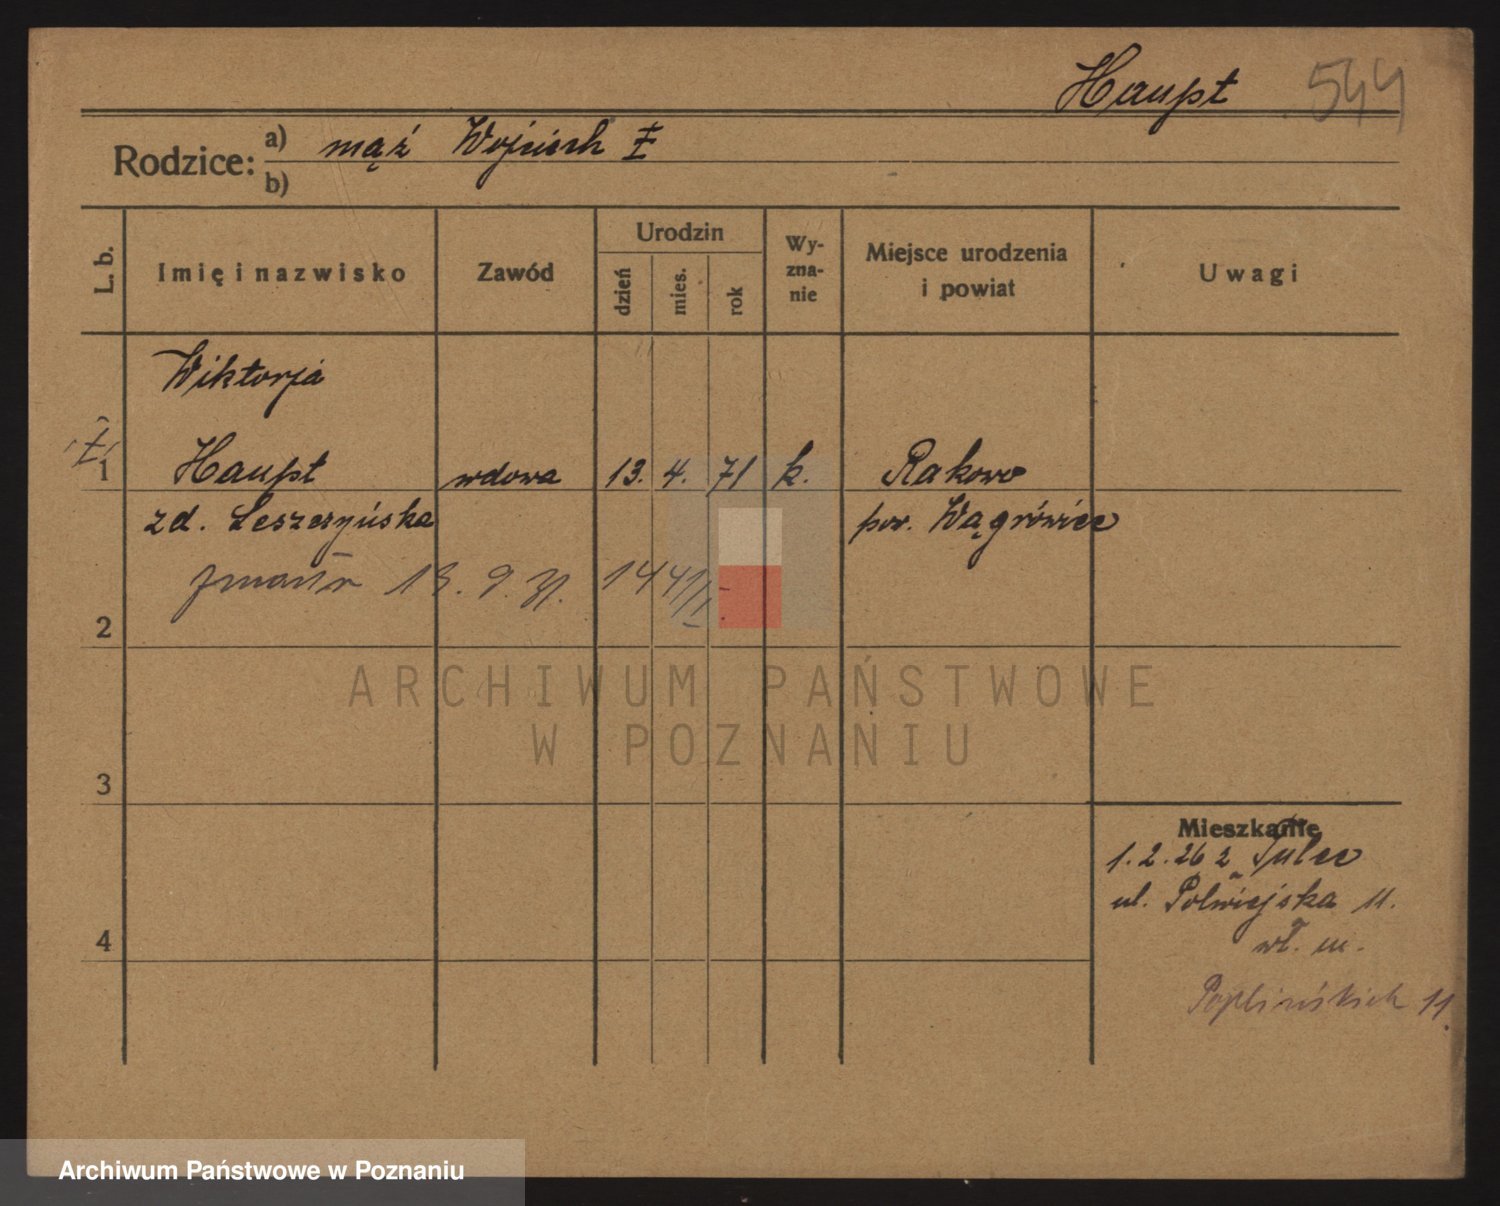 Haupt 544
Rodzice: a) mąż Wojciech ‡
b)
L. b. Imię i nazwisko Zawód Urodzin dzień mies. rok Wyznanie Miejsce urodzenia i powiat Uwagi
Wiktorja
1 Haupt wdowa 13. 4. 71 k. Rakowo
zd. Leszczyńska pow. Wągrówiec
zmarła 13. 9. 31.
2
3
4
Mieszkanie
1. 2. 26 z Tulec
ul. Półwiejska 11.
wł. m.
Poplińskich 11.
ARCHIWUM PAŃSTWOWE
W POZNANIU
Archiwum Państwowe w Poznaniu